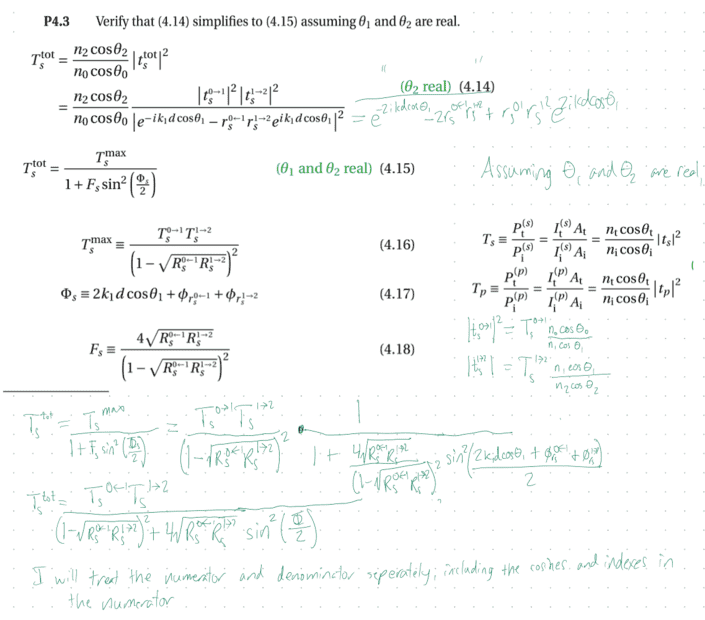 P4.3 Verify that (4.14) simplifies to (4.15) assuming θ₁ and θ₂ are real.
T_s^tot = (n₂ cosθ₂)/(n₀ cosθ₀) |t_s^tot|²
= (n₂ cosθ₂)/(n₀ cosθ₀) (|t_s^{0→1}|² |t_s^{1→2}|²)/(|e^{-ik₁d cosθ₁} − r_s^{0←1} r_s^{1→2} e^{ik₁d cosθ₁}|²) (θ₂ real) (4.14)
= e^{-2ikdcosθ₁} − 2r_s^{0←1} r_s^{1→2} + r_s^{01} r_s^{12} e^{2ikdcosθ₁}
T_s^tot = T_s^max/(1 + F_s sin²(Φ_s/2)) (θ₁ and θ₂ real) (4.15)
Assuming θ₁ and θ₂ are real,
T_s^max ≡ (T_s^{0→1} T_s^{1→2})/(1 − √(R_s^{0←1} R_s^{1→2}))² (4.16)
Φ_s ≡ 2k₁d cosθ₁ + ϕ_{r_s^{0←1}} + ϕ_{r_s^{1→2}} (4.17)
F_s ≡ 4√(R_s^{0←1} R_s^{1→2})/(1 − √(R_s^{0←1} R_s^{1→2}))² (4.18)
T_s ≡ P_t^(s)/P_i^(s) = (I_t^(s) A_t)/(I_i^(s) A_i) = (n_t cosθ_t)/(n_i cosθ_i) |t_s|²
T_p ≡ P_t^(p)/P_i^(p) = (I_t^(p) A_t)/(I_i^(p) A_i) = (n_t cosθ_t)/(n_i cosθ_i) |t_p|²
|t_s^{0→1}|² = T_s^{0→1} (n₀ cosθ₀)/(n₁ cosθ₁)
|t_s^{1→2}| = T_s^{1→2} (n₁ cosθ₁)/(n₂ cosθ₂)
T_s^tot = T_s^max/(1 + F_s sin²(Φ/2)) = (T_s^{0→1} T_s^{1→2})/(1 − √(R_s^{0←1} R_s^{1→2}))² · 1/(1 + 4√(R_s^{0←1} R_s^{1→2})/(1 − √(R_s^{0←1} R_s^{1→2}))² sin²((2k₁dcosθ₁ + ϕ_{rs}^{0←1} + ϕ_{rs}^{1→2})/2))
T_s^tot = (T_s^{0←1} T_s^{1→2})/((1 − √(R_s^{0←1} R_s^{1→2}))² + 4√(R_s^{0←1} R_s^{1→2}) sin²(Φ/2))
I will treat the numerator and denominctor seperately; including the cosines and indexes in
the numerator